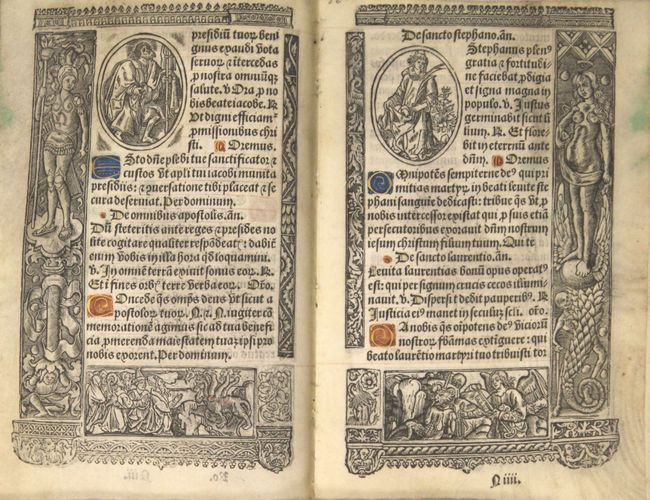 presidiũ tuoꝝ beni
gnus exaudi vota
seruoꝝ ⁊ ītercedas
p nostra omniũq̃
salute. V. Ora, p no
bis beate iacobe. R
Vt digni efficiam᷑
pmissionibus chri
sti. Oremus.
ESto dñe plebi tue sanctificator ⁊
custos vt apli tui iacobi munita
presidiis: ⁊ ꝯuersatione tibi placeat ⁊ se
cura deseruiat. Per dominum.
De omnibus apostolis. añ.
Dũ steteritis ante reges ⁊ presides no
lite cogitare qualiter respōdeat᷑: dabit᷑
enim vobis in illa hora qd loquamini.
V. In omnē terrā exiuit sonus eoꝝ. R.
Et ī fines orb᷑ terre verba eoꝝ. Oro.
COncede q̃s omp̄s deus vt sicut a
postoloꝝ tuoꝝ. N. ⁊. N. iugiter cō
memorationē agimus sic ad tua benefi
cia, pmerenda maiestatem tuā ipsi pro
nobis exorent. Per dominum.
De sancto stephano. añ.
Stephanus plen᷒
gratia ⁊ fortitudi
ne faciebat, pdigia
et signa magna in
populo. V. Justus
germinabit sicut li
lium. R. Et flore
bit in eternũ ante
dñm. Oremus
OMnipotēs sempiterne de᷒ qui pri
mitias martyꝝ in beati leuite ste
phani sanguie dedicasti: tribue q̃s vt, p
nobis intercessor existat qui, p suis etiā
persecutoribus exorauit dñm nostrum
iesum christum filium tuum. Qui te
De sancto laurentio. añ.
Leuita laurentius bonũ opus operat᷒
est: qui per signum crucis cecos illumi
nauit. V. Dispersit dedit pauperib᷒. R
Justicia ei᷒ manet in seculũ scli. oro.
DA nobis q̃s oīpotens de᷒ vicioꝝ
nostroꝝ flāmas extiguere: qui
beato laurētio martyri tuo tribuisti tor
N iiii.